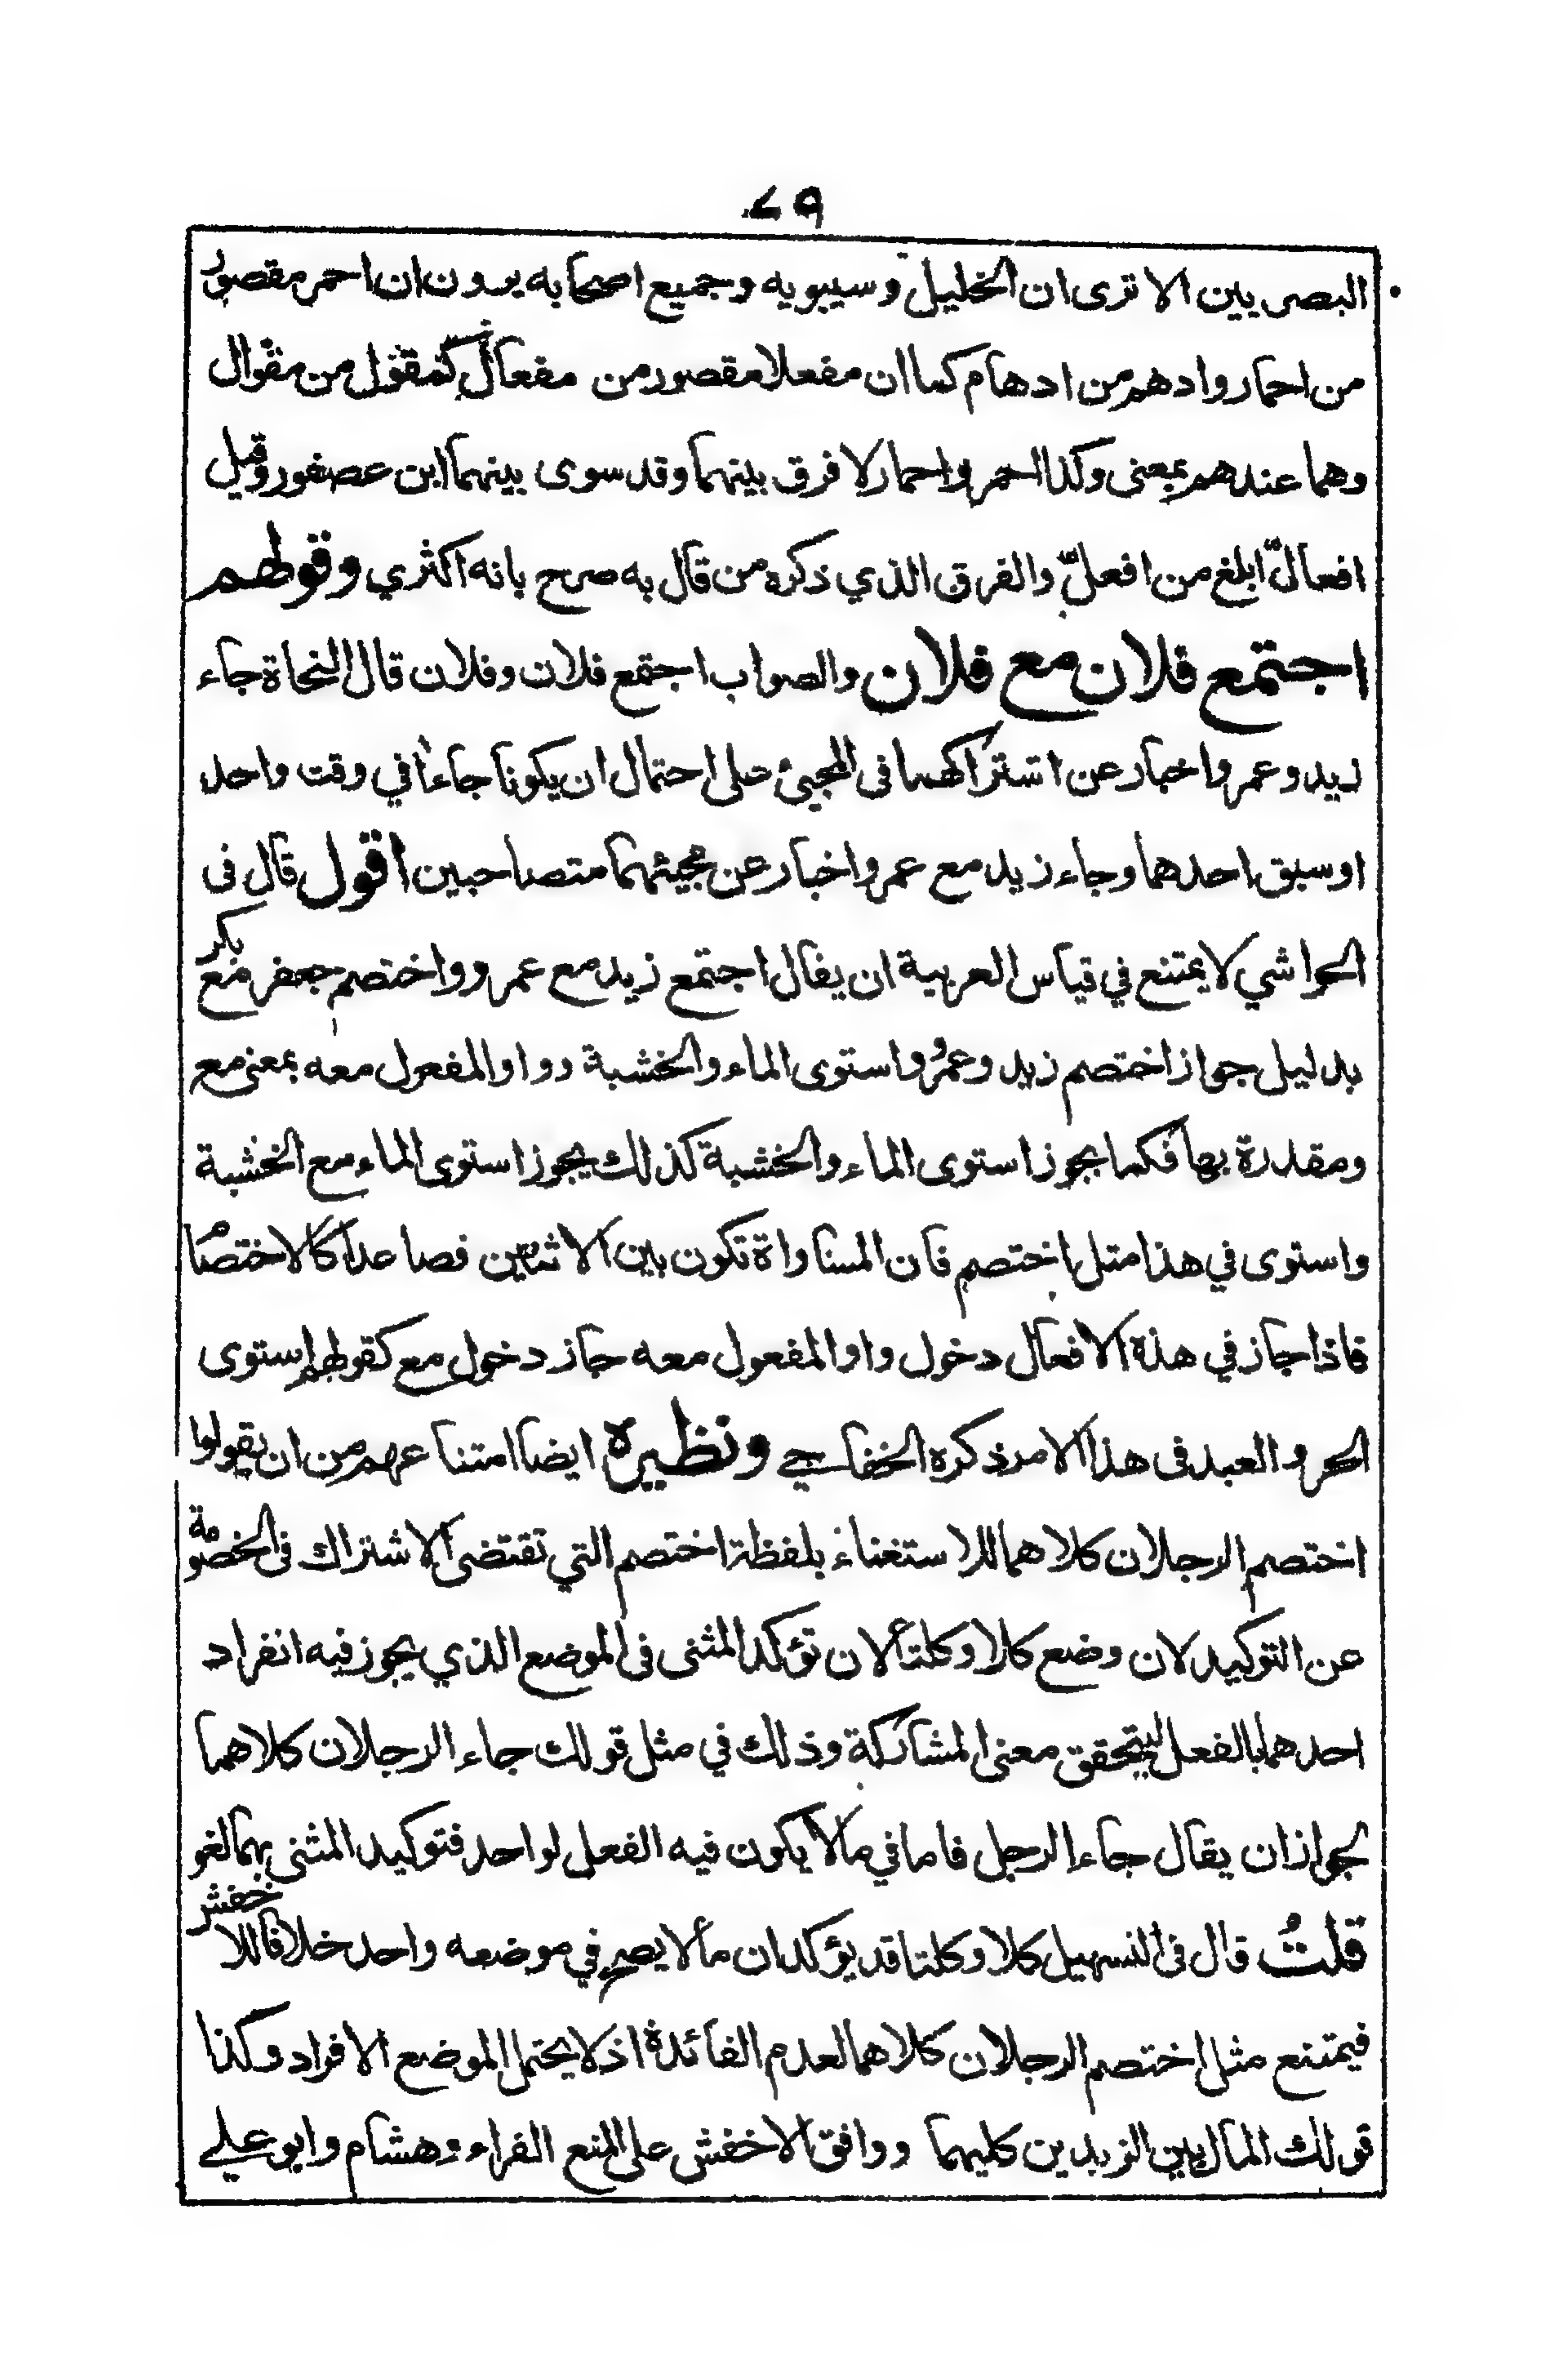 ٤٩
البصريين الا ترى ان الخليل وسيبويه وجميع اصحابه يرون ان احمر مقصور
من احمار وادهم من ادهام كما ان مفعلا مقصور من مفعال كمقول من مقوال
وهما عندهم بمعنى وكذا احمر واحمار لا فرق بينهما وقد سوى بينهما ابن عصفور وقيل
افعالّ ابلغ من افعلّ والفرق الذي ذكره من قال به صرح بانه اكثري وقولهم
اجتمع فلان مع فلان والصواب اجتمع فلان وفلان قال النحاة جاء
زيد وعمرو اخبار عن اشتراكهما فى المجيئ على احتمال ان يكونا جاءا في وقت واحد
او سبق احدهما وجاء زيد مع عمرو اخبار عن مجيئهما متصاحبين اقول قال فى
الحواشي لا يمتنع في قياس العربية ان يقال اجتمع زيد مع عمرو واختصم جعفر مع بكر
بدليل جواز اختصم زيد وعمرُو واستوى الماء والخشبة وواو المفعول معه بمعنى مع
ومقدرة بها فكما يجوز استوى الماء والخشبة كذلك يجوز استوى الماء مع الخشبة
واستوى في هذا مثل اختصم فان المساواة تكون بين الاثنين فصاعدا كالاختصام
فاذا جاز في هذه الافعال دخول واو المفعول معه جاز دخول مع كقولهم استوى
الحر والعبد فى هذا الامر ذكره الخفاجي ونظيره ايضا امتناعهم من ان يقولوا
اختصم الرجلان كلاهما للاستغناء بلفظة اختصم التي تقتضى الاشتراك فى الخصومة
عن التوكيد لان وضع كلا وكلتا لان تؤكد المثنى فى الموضع الذي يجوز فيه انفراد
احدهما بالفعل ليتحقق معنى المشاركة وذلك في مثل قولك جاء الرجلان كلاهما
لجواز ان يقال جاء الرجل فاما في ما لا يكون فيه الفعل لواحد فتوكيد المثنى بهما لغو
قلتُ قال فى التسهيل كلا وكلتا قد يؤكدان ما لا يصح في موضعه واحد خلافا للاخفش
فيمتنع مثل اختصم الرجلان كلاهما لعدم الفائدة اذ لا يحتمل الموضع الافراد وكذا
قولك المال بين الزيدين كليهما ووافق الاخفش على المنع الفراء وهشام وابو علي